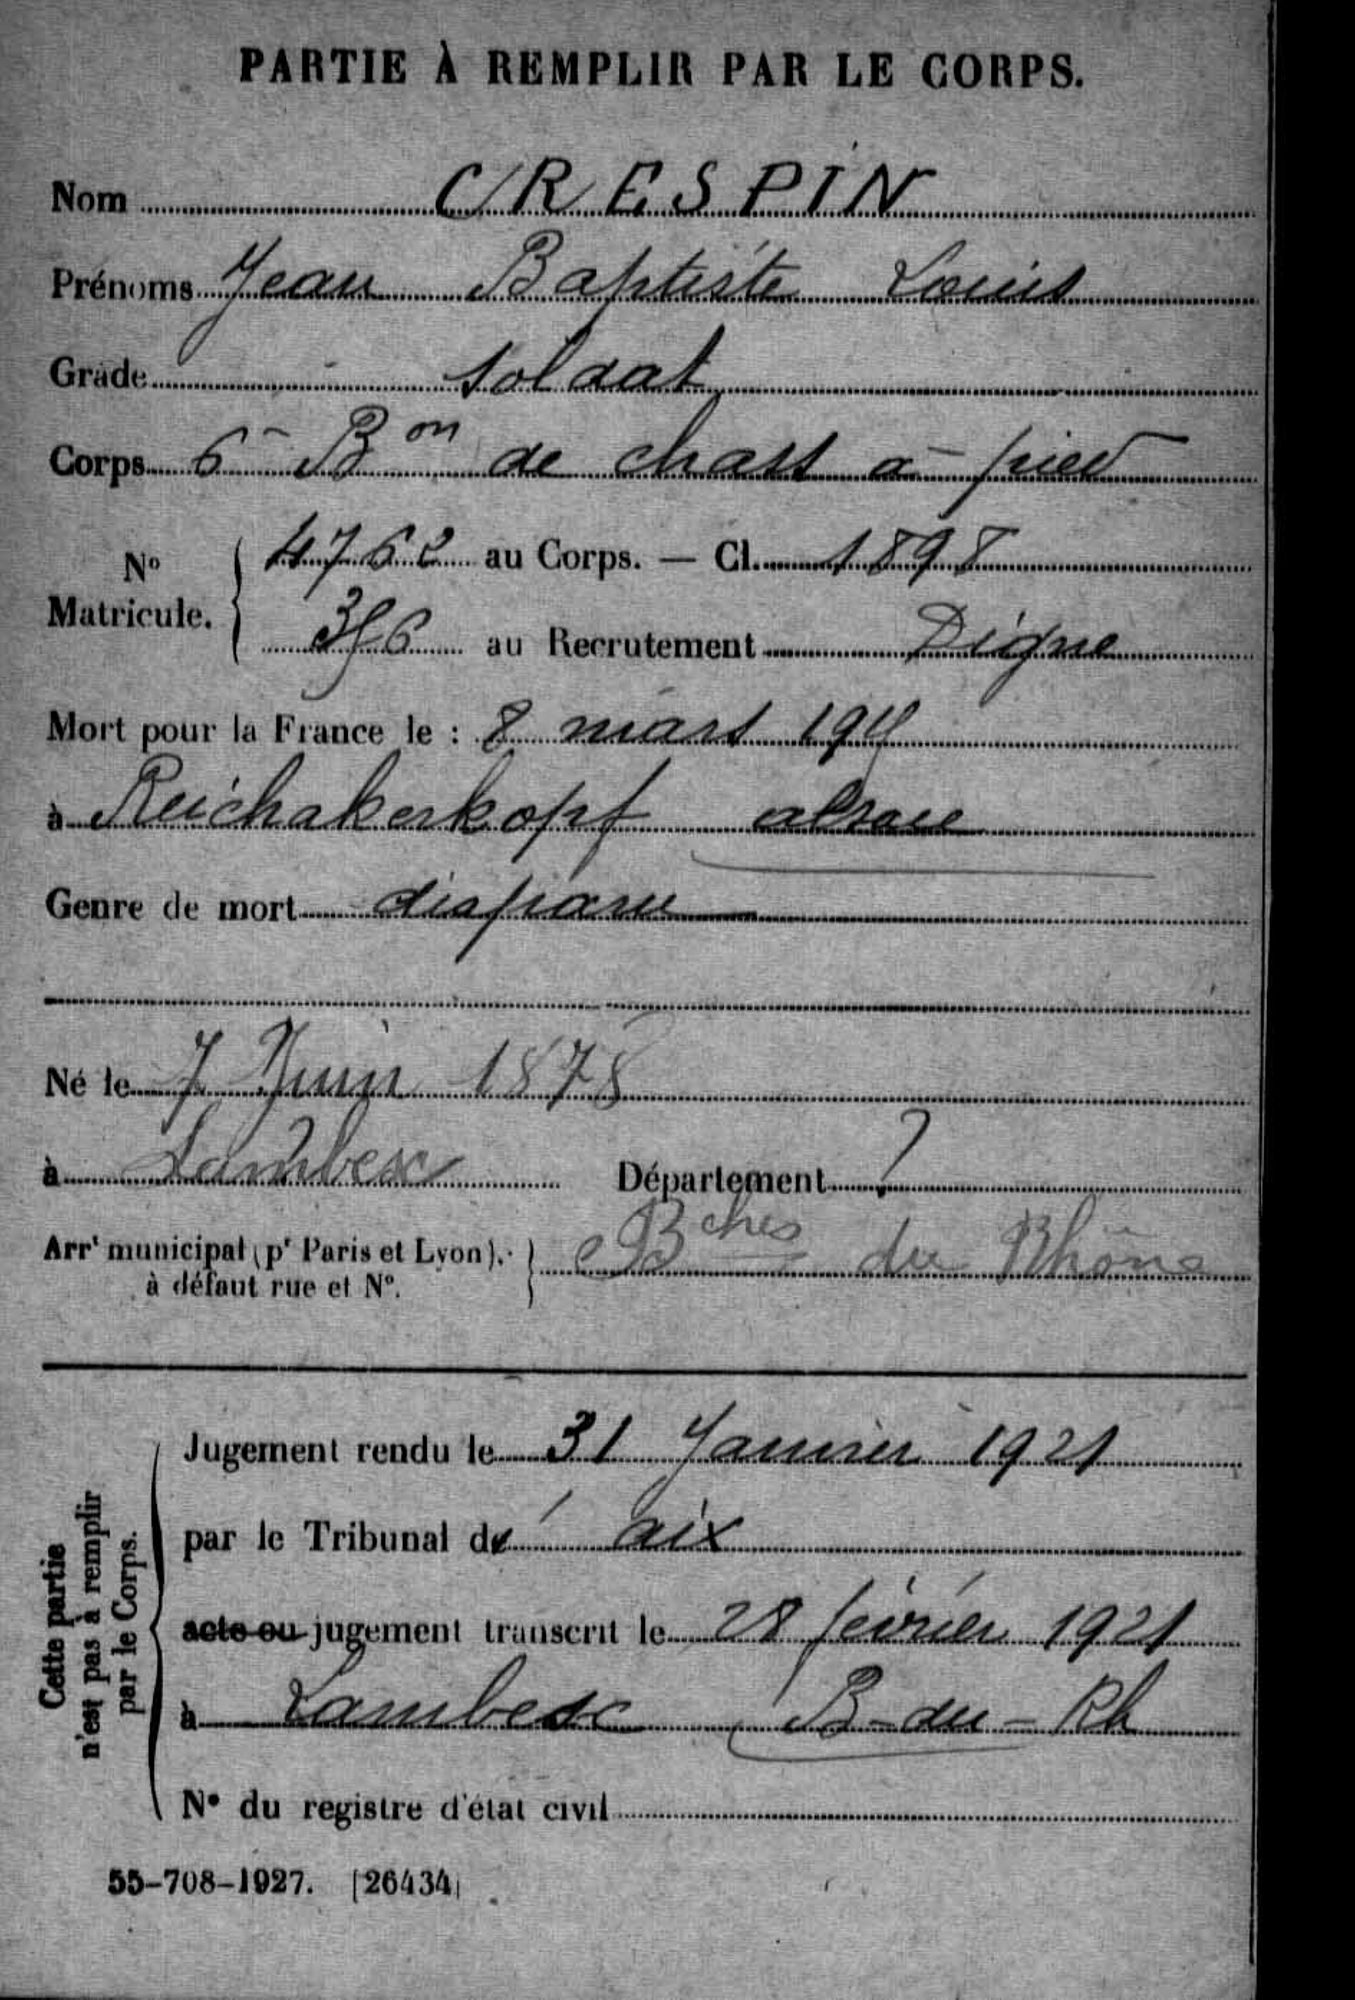 PARTIE À REMPLIR PAR LE CORPS.
Nom CRESPIN
Prénoms Jean Baptiste Louis
Grade soldat
Corps 6e Bon de chass à pied
No Matricule. 4762 au Corps. — Cl. 1898
356 au Recrutement Digne
Mort pour la France le : 8 mars
à Reichakerkopf alsace
Genre de mort disparu
Né le 7 Juin 1878
à Lambesc Département ?
Arrt municipal (pr Paris et Lyon), à défaut rue et No. Bches du Rhône
Cette partie n'est pas à remplir par le Corps.
Jugement rendu le 31 Janvier 1921
par le Tribunal d' aix
acte ou jugement transcrit le 28 février 1921
à Lambesc B-du-Rh
No du registre d'état civil
55-708-1927. [26434]